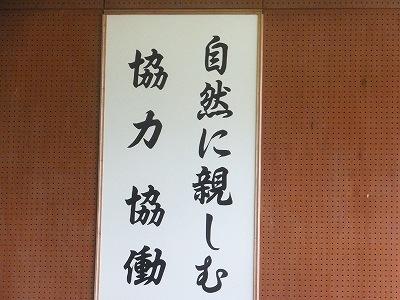 自然に親しむ
協力 協働